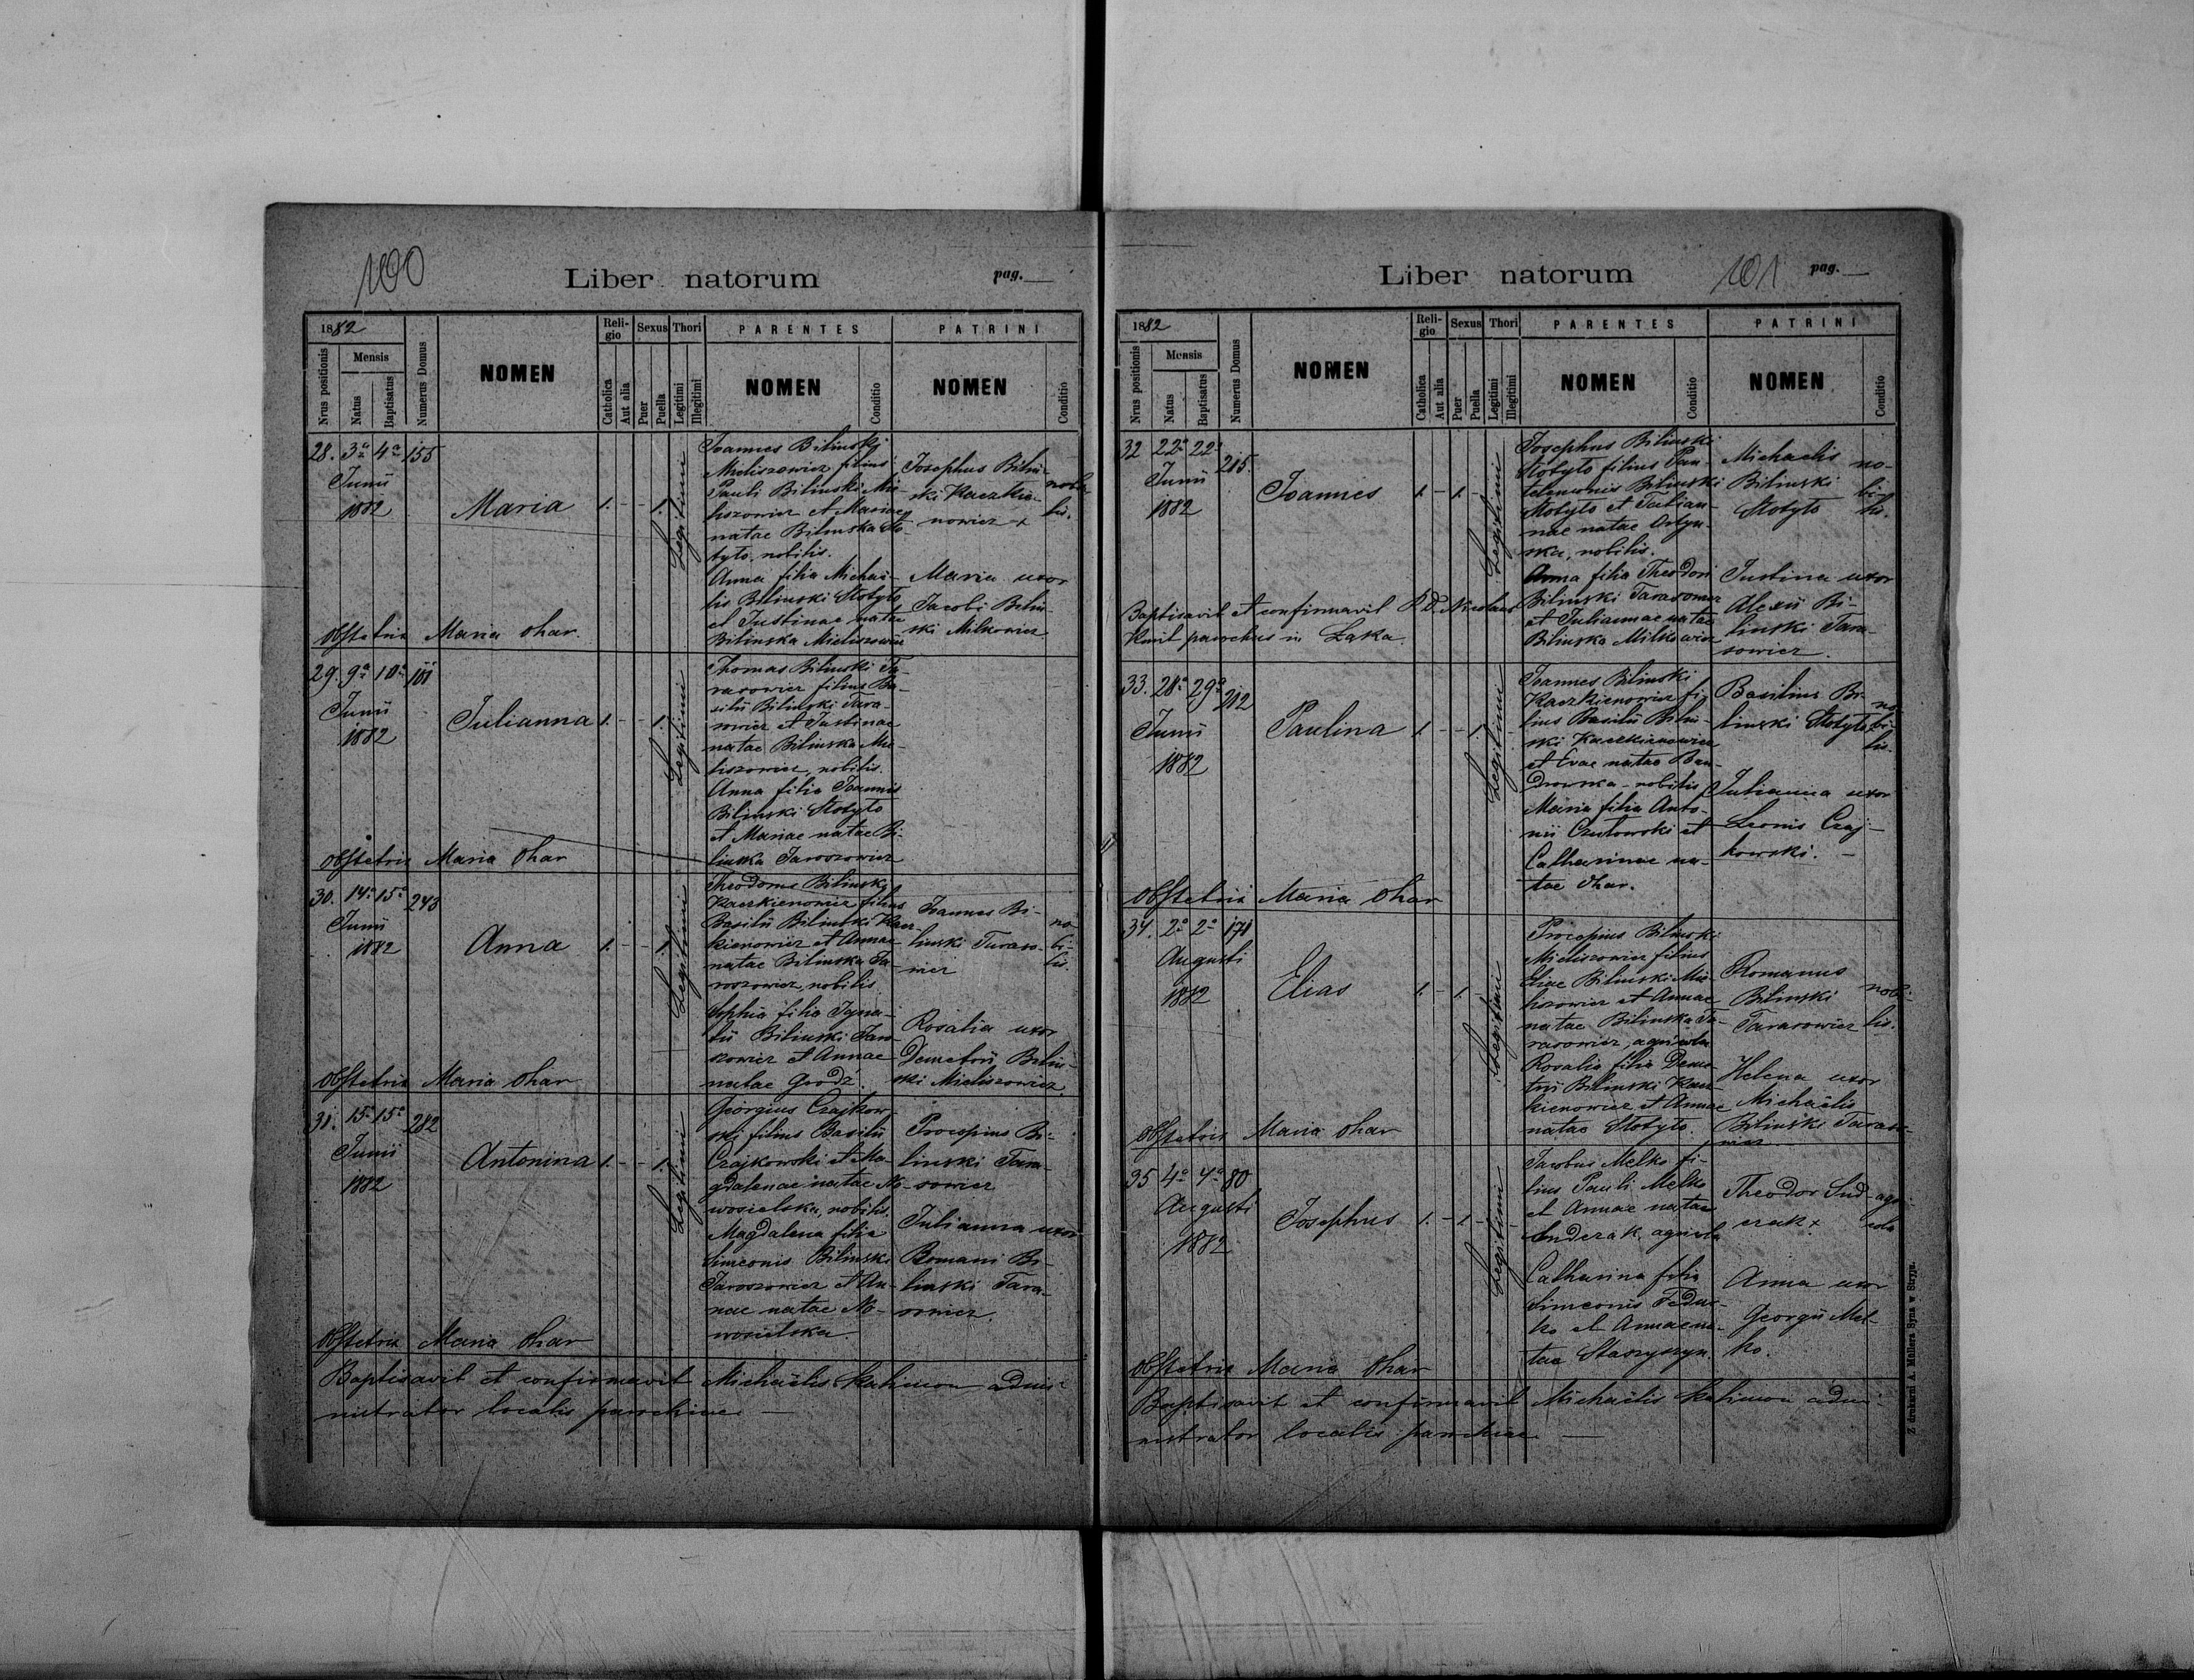 100
Liber natorum
pag.
1882
Nrus positionis
Mensis
Natus
Baptisatus
Numerus Domus
NOMEN
Religio
Catholica
Aut alia
Sexus
Puer
Puella
Thori
Legitimi
Illegitimi
PARENTES
NOMEN
Conditio
PATRINI
NOMEN
Conditio
28. 3a 4a 155
Junii
1882
Maria
1. - - 1.
Legitimi
Joannes Bilinski
Mieliszowicz filius
Pauli Bilinski Mie-
liszowicz et Mariae
natae Bilinska Sto-
tyto, nobilis.
Anna filia Michaë-
lis Bilinski Stotyto
et Justinae natae
Bilinska Mieliszowicz
Josephus Bilin-
ski Kaczkie-
nowicz x
nobi-
lis.
Maria uxor
Jacobi Bilin-
ski Milkowicz
Obstetrix Maria Ohar.
29. 9a 10a 181
Junii
1882
Julianna
1. - - 1.
Legitimi
Thomas Bilinski Ta-
rasowicz filius Ba-
silii Bilinski Tara-
sowicz et Justinae
natae Bilinska Mie-
liszowicz, nobilis.
Anna filia Joannis
Bilinski Stotyto
et Mariae natae Bi-
linska Jaroszowicz
Obstetrix Maria Ohar
30. 14a 15a 243
Junii
1882
Anna
1. - - 1.
Legitimi
Theodorus Bilinski
Kaczkienowicz filius
Basilii Bilinski Kacz-
kienowicz et Annae
natae Bilinska Ja-
roszowicz, nobilis
Sophia filia Igna-
tii Bilinski Jaro-
szowicz et Annae
natae Grodz.
Joannes Bi-
linski Taraso-
wicz
no-
bi-
lis.
Rosalia uxor
Demetrii Bilin-
ski Mieliszowicz
Obstetrix Maria Ohar
31. 15a 15a 282
Junii
1882
Antonina
1. - - 1.
Legitimi
Georgius Czajkow-
ski filius Basilii
Czajkowski et Ma-
gdalenae natae No-
wosielska, nobilis.
Magdalena filia
Simeonis Bilinski
Jaroszowicz et An-
nae natae No-
wosielska.
Procopius Bi-
linski Tara-
sowicz
Julianna uxor
Romani Bi-
linski Tara-
sowicz.
Obstetrix Maria Ohar
Baptisavit et confirmavit Michaëlis Kalimon admi-
nistrator localis parochiae
Liber natorum
101
pag.
1882
Nrus positionis
Mensis
Natus
Baptisatus
Numerus Domus
NOMEN
Religio
Catholica
Aut alia
Sexus
Puer
Puella
Thori
Legitimi
Illegitimi
PARENTES
NOMEN
Conditio
PATRINI
NOMEN
Conditio
32 22a 22a 215.
Junii
1882
Joannes
1. - 1. -
Legitimi
Josephus Bilinski
Stotyto filius Pan-
telemonis Bilinski
Stotyto et Julian-
nae natae Ortyn-
ska, nobilis.
Anna filia Theodori
Bilinski Tarasowicz
et Juliannae natae
Bilinska Milkowicz
Michaelis
Bilinski
Stotyto
no-
bi-
lis.
Justina uxor
Alexii Bi-
linski Tara-
sowicz.
Baptisavit et confirmavit R. D. Nicolaus
Kmit parochus in Łąka.
33. 28a 29a 212
Junii
1882
Paulina
1. - - 1.
Legitimi
Joannes Bilinski
Kaczkienowicz fi-
lius Basilii Bilin-
ski Kaczkienowicz
et Evae natae Ban-
drowska nobilis
Maria filia Anto-
nii Czulowski et
Catharinae na-
tae Ohar.
Basilius Bi-
linski Stotyto x
no-
bi-
lis.
Julianna uxor
Leonis Czaj-
kowski. -
Obstetrix Maria Ohar
34. 2a 2a 171
Augusti
1882
Elias
1. - 1. -
Legitimi
Procopius Bilinski
Mieliszowicz filius
Eliae Bilinski Mie-
liszowicz et Annae
natae Bilinska Ta-
rasowicz, agricola
Rosalia filia Deme-
trii Bilinski Kacz-
kienowicz et Annae
natae Stotyto.
Romanus
Bilinski
Tarasowicz
nobi-
lis.
Helena uxor
Michaëlis
Bilinski Taraso-
wicz
Obstetrix Maria Ohar
35 4a 4a 80
Augusti
1882
Josephus
1. - 1. - -
Legitimi
Jacobus Melko fi-
lius Pauli Melko
et Annae natae
Senderak, agricola
Catharina filia
Simeonis Fedus-
ko et Annae na-
tae Staszyszyn.
Theodor Sud-
erak x
agri
cola
Anna uxor
Georgii Mel-
ko.
Obstetrix Maria Ohar
Baptisavit et confirmavit Michaëlis Kalimon admi-
nistrator localis parochiae
Z drukarni A. Mullera Syna w Stryju.